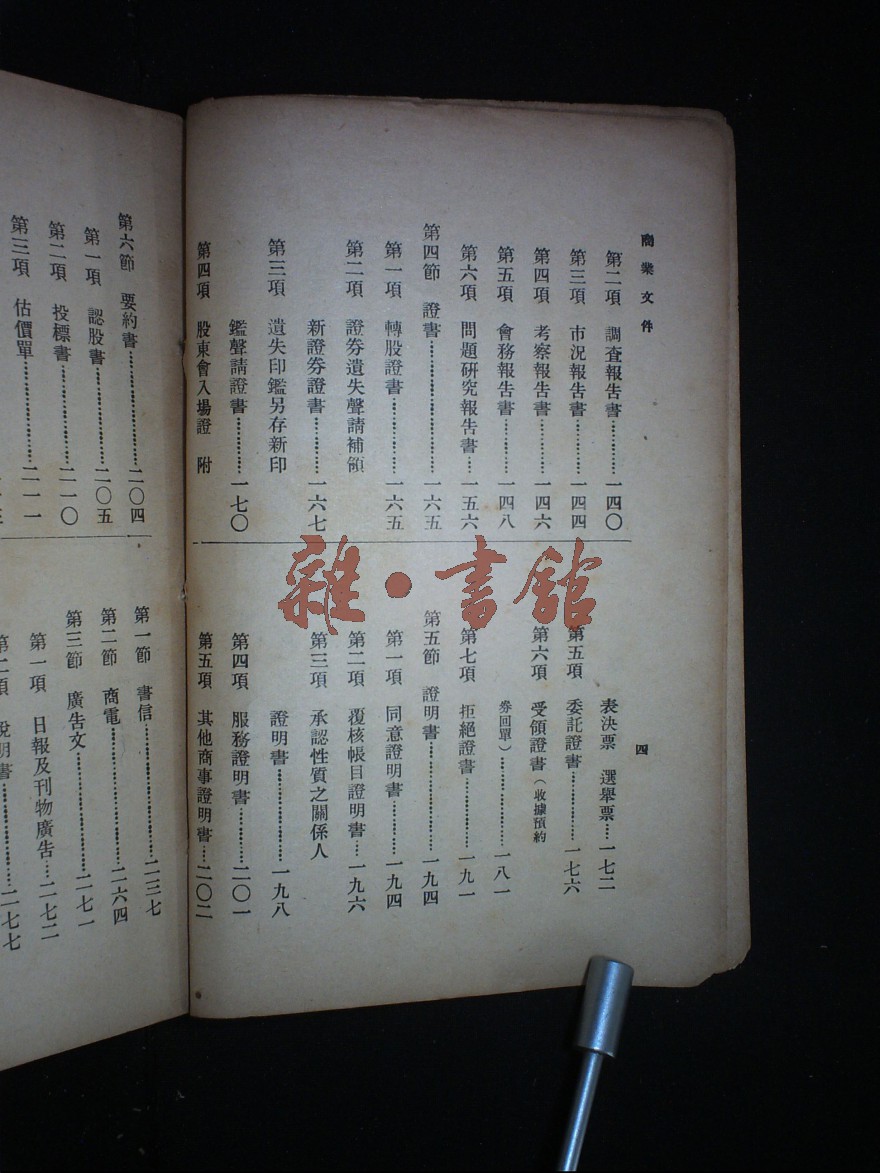 商業文件
第二項 調查報告書………一四〇
第三項 市況報告書………一四四
第四項 考察報告書………一四六
第五項 會務報告書………一四八
第六項 問題研究報告書………一五六
第四節 證書………一六五
第一項 轉股證書………一六五
第二項 證券遺失聲請補領
新證券證書………一六七
第三項 遺失印鑑另存新印
鑑聲請證書………一七〇
第四項 股東會入場證 附
四
表決票 選舉票…一七二
第五項 委託證書………一七六
第六項 受領證書(收據預約
券回單)………一八一
第七項 拒絕證書………一九一
第五節 證明書………一九四
第一項 同意證明書………一九四
第二項 覆核帳目證明書…一九六
第三項 承認性質之關係人
證明書………一九八
第四項 服務證明書………二〇一
第五項 其他商事證明書…二〇二
第六節 要約書………二〇四
第一項 認股書………二〇五
第二項 投標書………二一〇
第三項 估價單………二一一
第一節 書信………二三七
第二節 商電………二六四
第三節 廣告文………二七一
第一項 日報及刊物廣告…二七二
第二項 說明書………二七七
雜·書館